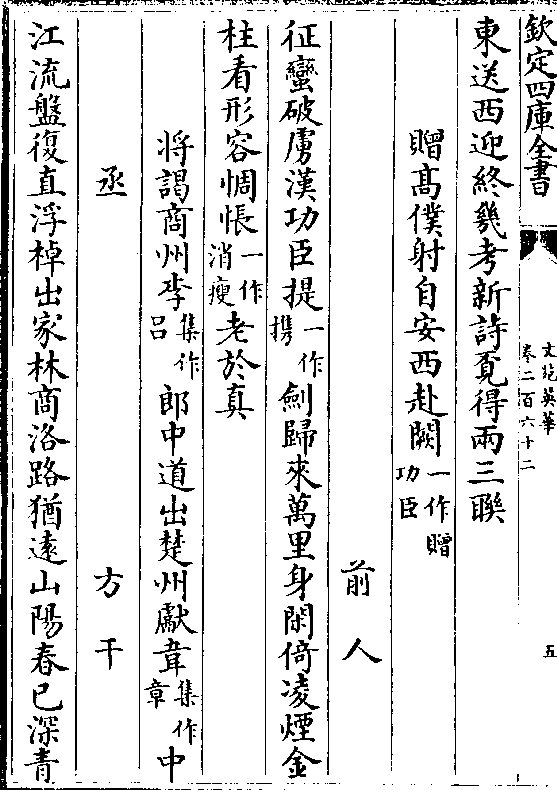 欽定四庫全書
文苑英華
卷二百六十二
五
東送西迎終幾考新詩覓得兩三聯
贈髙僕射自安西赴闕一作贈功臣
前人
征蠻破虜漢功臣提一作携劍歸來萬里身閑倚凌煙金
柱看形容惆悵一作消瘦老於真
將謁商州李集作呂郎中道出楚州獻韋集作章中
丞
方干
江流盤復直浮棹出家林商洛路猶逺山陽春已深青